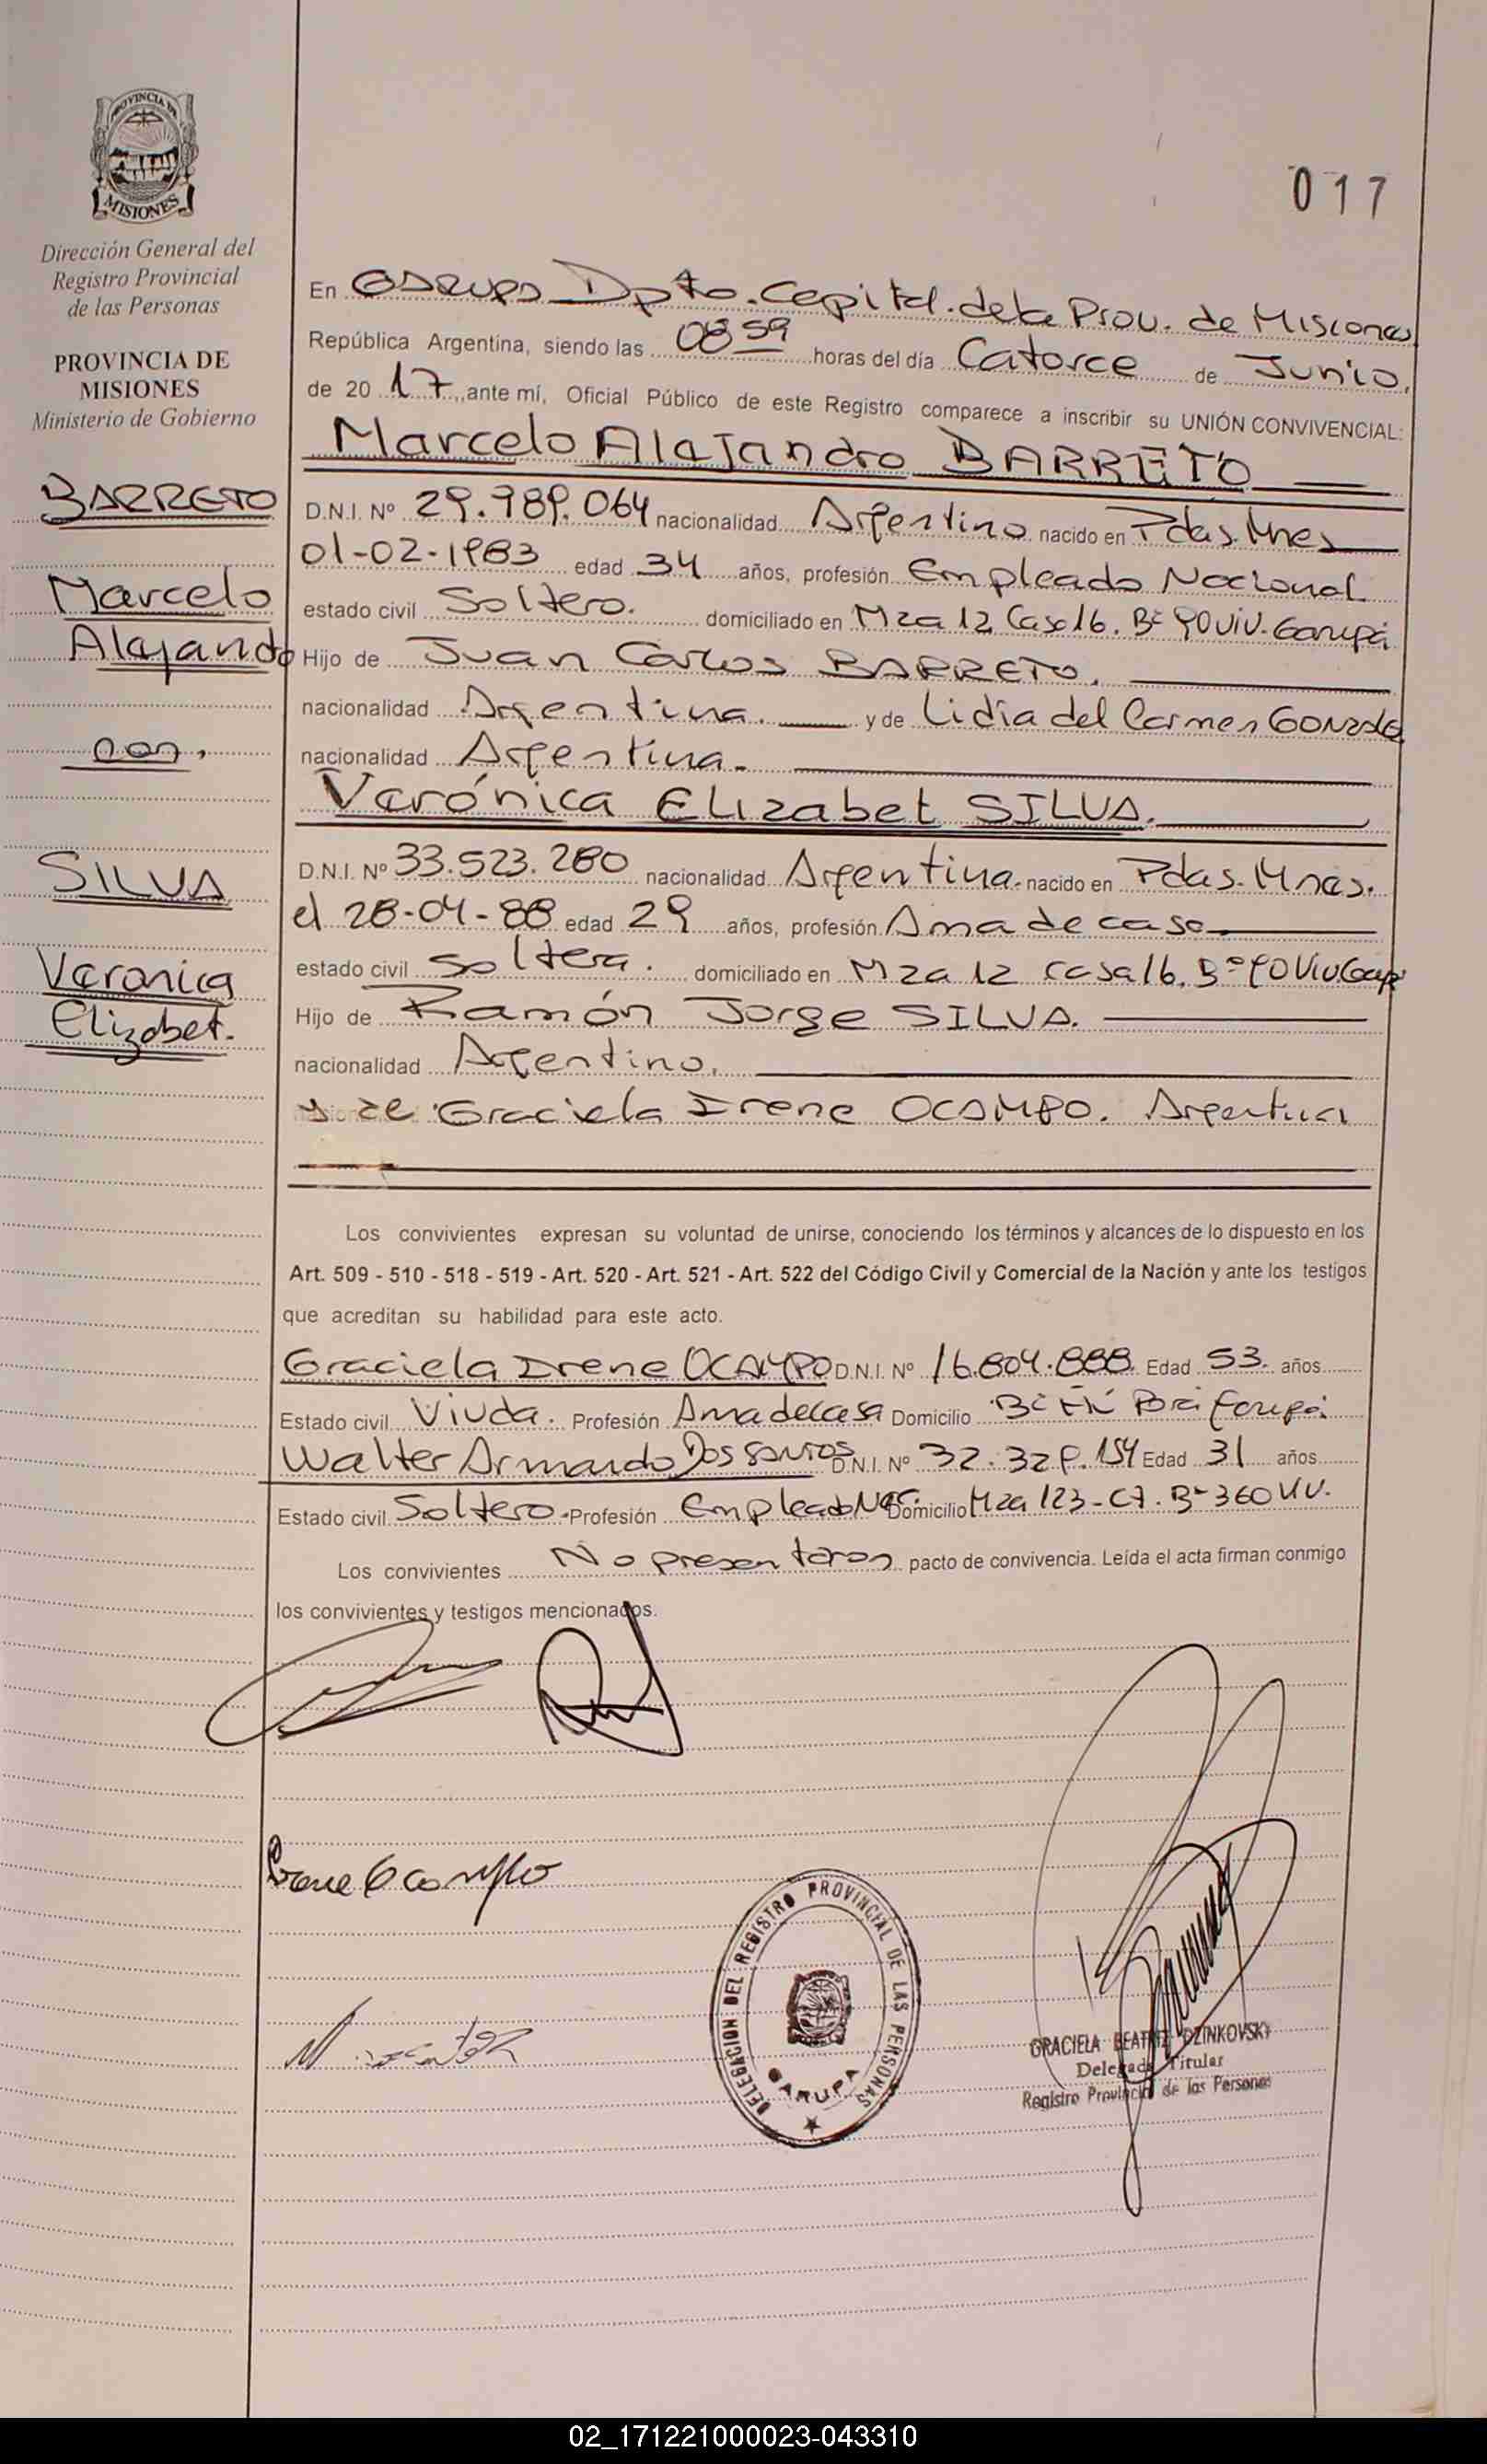 PROVINCIA DE
MISIONES
Dirección General del
Registro Provincial
de las Personas
PROVINCIA DE
MISIONES
Ministerio de Gobierno
BARRETO
Marcelo
Alejandro
con,
SILVA
Veronica
Elizabet.
017
En GARUPA Dpto. Capital. de la Prov. de Misiones
República Argentina, siendo las 08 59 horas del día Catorce de Junio,
de 20 17, ante mí, Oficial Público de este Registro comparece a inscribir su UNIÓN CONVIVENCIAL:
Marcelo Alejandro BARRETO
D.N.I. Nº 29.989.064 nacionalidad Argentino nacido en Pdas. Mnes
01-02-1983 edad 34 años, profesión Empleado Nacional
estado civil Soltero. domiciliado en Mza 12 Casa 16. Bº 90 Viv. Garupá
Hijo de Juan Carlos BARRETO.
nacionalidad Argentina. y de Lidia del Carmen
nacionalidad Argentina.
Verónica Elizabet SILVA.
D.N.I. Nº 33.523.280 nacionalidad Argentina. nacido en Pdas. Mnes.
el 28-04-88 edad 29 años, profesión Ama de casa
estado civil soltera. domiciliado en Mza 12 casa 16. Bº 90 Viv.
Hijo de Ramón Jorge SILVA.
nacionalidad Argentino.
y de Graciela Irene OCAMPO. Argentina
Los convivientes expresan su voluntad de unirse, conociendo los términos y alcances de lo dispuesto en los
Art. 509 - 510 - 518 - 519 - Art. 520 - Art. 521 - Art. 522 del Código Civil y Comercial de la Nación y ante los testigos
que acreditan su habilidad para este acto.
Graciela Irene OCAMPO D.N.I. Nº 16.804.888. Edad 53. años
Estado civil Viuda. Profesión Ama de casa Domicilio Garupá.
Walter Armando Dos Santos D.N.I. Nº 32.329.154 Edad 31 años
Estado civil Soltero. Profesión Empleado Nac. Domicilio Mza 123 - C7. Bº 360 Viv.
Los convivientes No presentaron pacto de convivencia. Leída el acta firman conmigo
los convivientes y testigos mencionados.
Irene Ocampo
DELEGACION DEL REGISTRO PROVINCIAL DE LAS PERSONAS
GARUPA
GRACIELA BEATRIZ DZINKOVSKY
Delegada Titular
Registro Provincial de las Personas
02_171221000023-043310